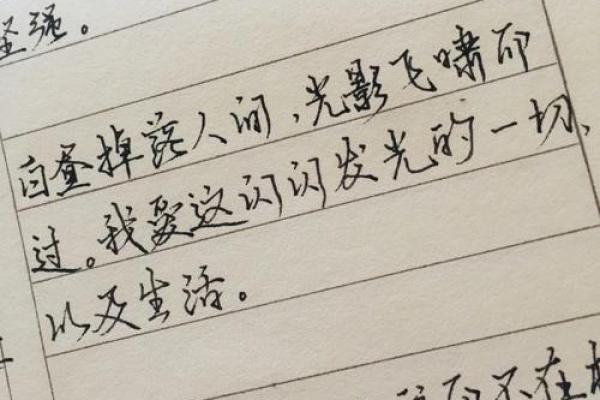 坚强。
白昼掉落人间,光影飞啸而
过。我爱这闪闪发光的一切,
以及生活。
而不在